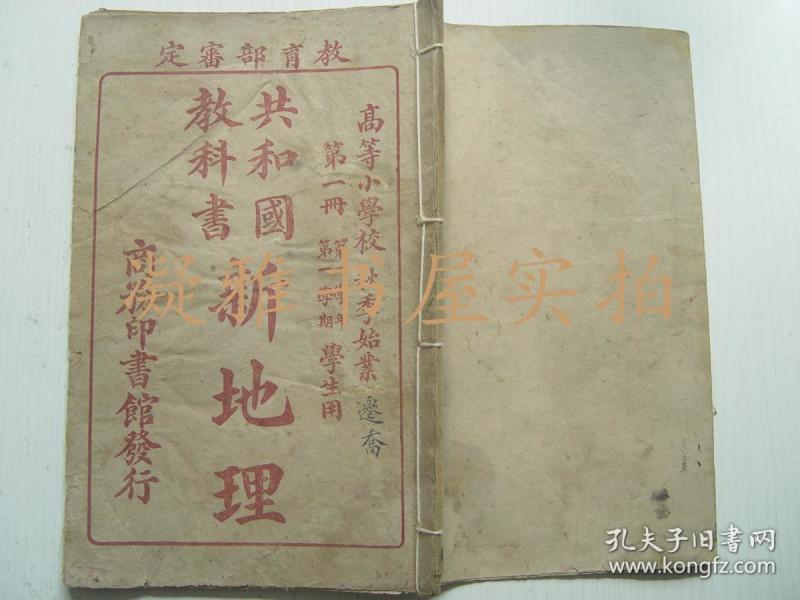 教育部審定
高等小學校秋季始業
遷喬
第一冊
第一學年
第一學期
學生用
共和國
教科書
新地理
商務印書館發行
凝雅书屋实拍
孔夫子旧书网
www.kongfz.com